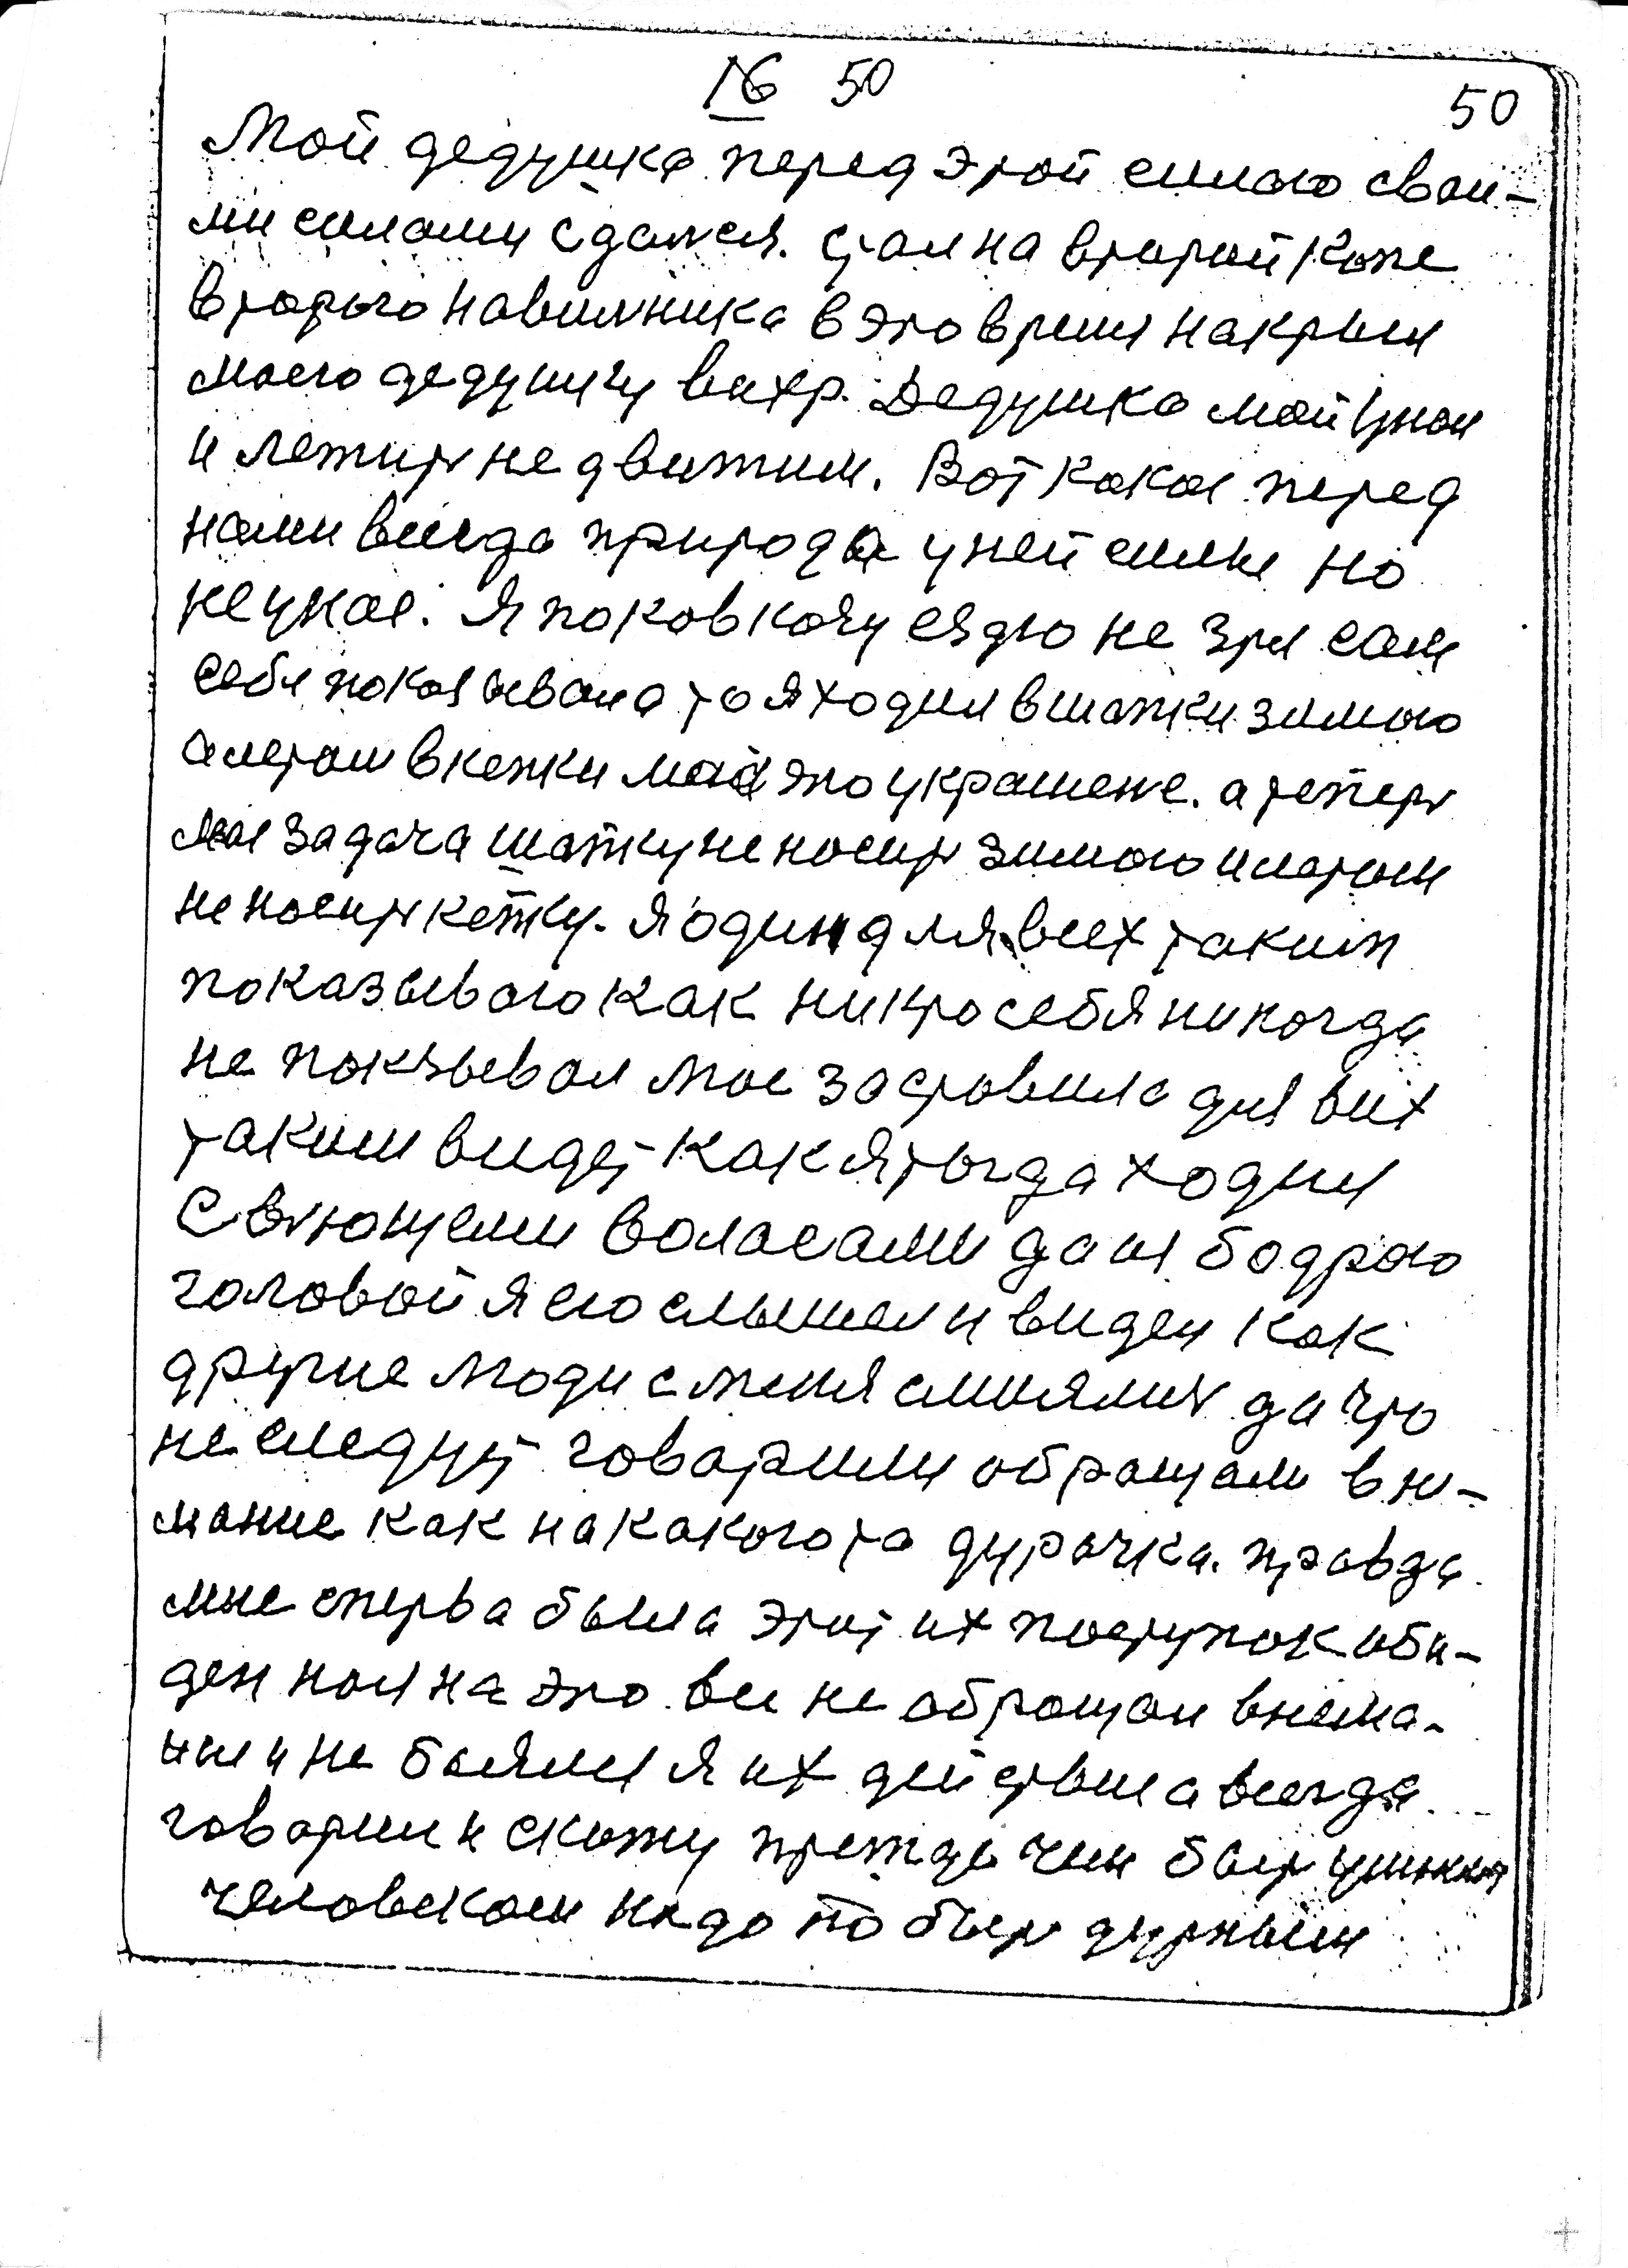 16 50
50
Мой дедушка перед этой силою свои-
ми силами сдался. стал на второй копе
второго навильника в это время накрыл
моего дедушку вихр. Дедушка мой упал
и лежить не движим. Вот какая перед
нами всегда природа у ней силы но
неукас. Я паков качу ездю не зря сам
себя показывал а то я ходил в шапки зимою
а летом в кепки маё это украшене. а теперь
мая задача шапку не носить зимою и летом
не носить кепку. Я один для всех таким
показываю как никто себя никогда
не паказывал мое заставила для всих
таким видет как я тогда ходил
с вьющеми воласами да ы бодрою
головой я ею слышел и видел как
другие люди с меня смиялись да что
не следует говорили обращали вни-
мание как на какого та дурачка. правда
мне сперва была этот их поступок оби-
ден но я на это все не обращал внема-
ния и не боялся я их действия а всегда
говорил и скажу прежде чем быть умным
человеком надо по быть дурным